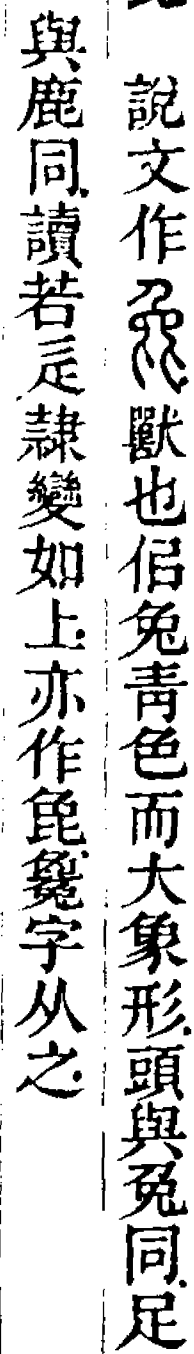 說文作㲋獸也佀兔靑色而大象形頭與兔同足
與鹿同讀若辵隸變如上亦作㲋毚字从之